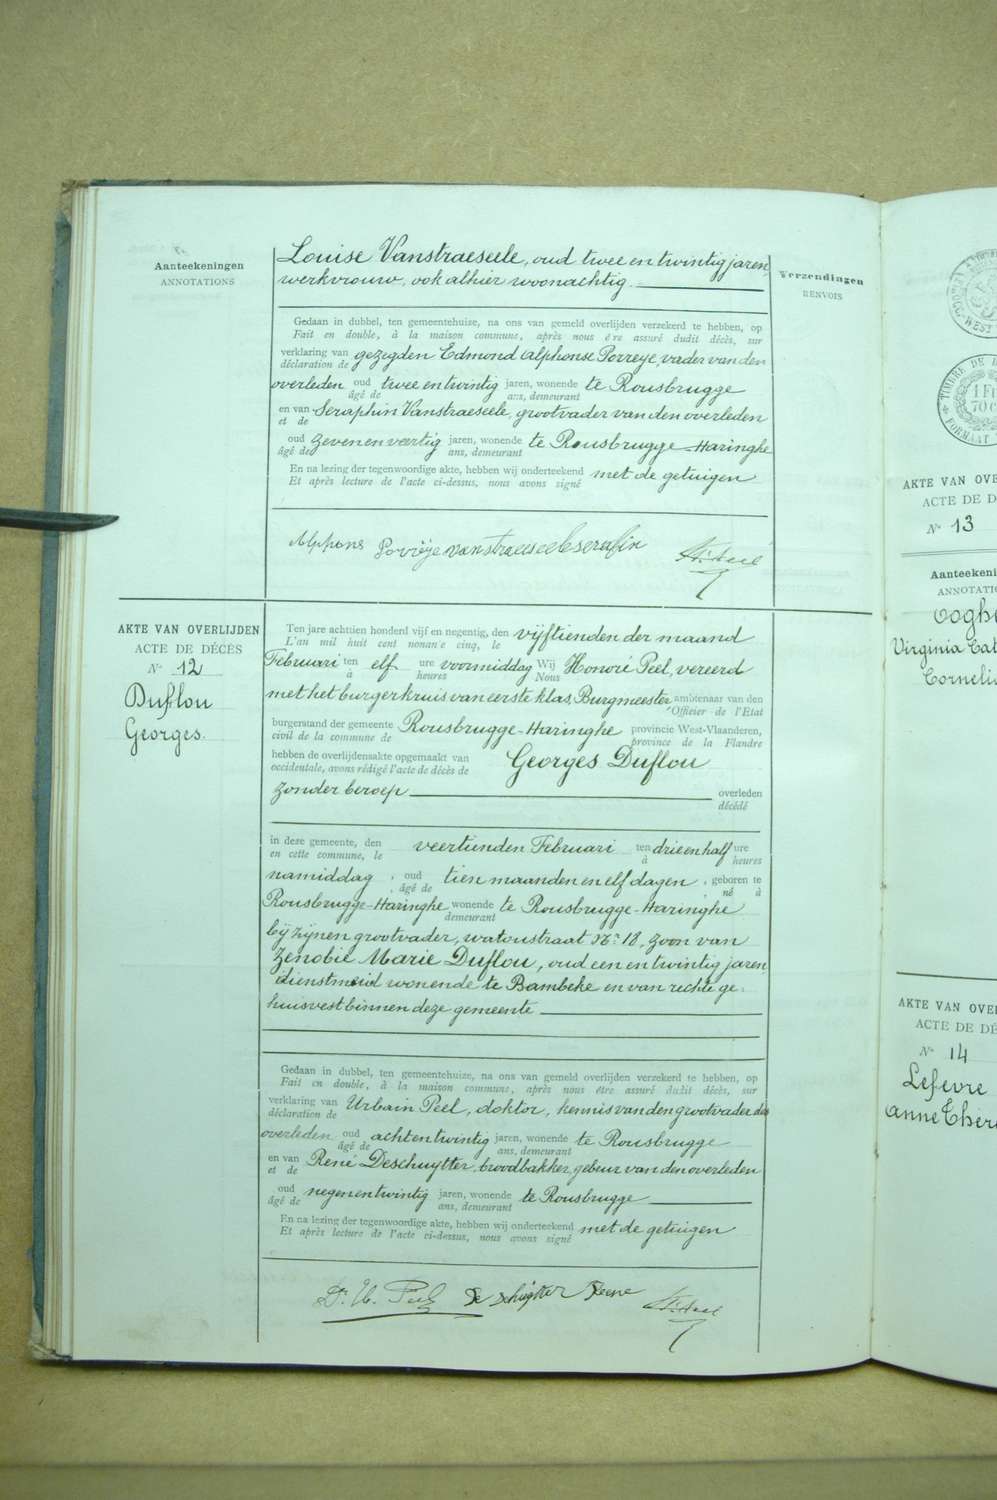 Aanteekeningen
ANNOTATIONS
Louise Vanstraeseele, oud twee en twintig jaren,
werkvrouw, ook alhier woonachtig.
Verzendingen
RENVOIS
Gedaan in dubbel, ten gemeentehuize, na ons van gemeld overlijden verzekerd te hebben, op
Fait en double, à la maison commune, après nous être assuré dudit décès, sur
verklaring van gezegden Edmond Alphonse Porreye, vader van den
déclaration de
overleden oud twee en twintig jaren, wonende te Rousbrugge
âgé de ans, demeurant
en van Seraphin Vanstraeseele, grootvader van den overleden
et de
oud zeven en veertig jaren, wonende te Rousbrugge-Haringhe
âgé de ans, demeurant
En na lezing der tegenwoordige akte, hebben wij onderteekend met de getuigen
Et après lecture de l'acte ci-dessus, nous avons signé
Alphons Porrëye vanstraeseele serafin
AKTE VAN OVERLIJDEN
ACTE DE DÉCÈS
N° 12
Duflou
Georges.
Ten jare achttien honderd vijf en negentig, den vijftienden der maand
L'an mil huit cent nonante cinq, le
Februari ten elf ure voormiddag Wij Honoré Peel, vereerd
à heures Nous
met het burgerkruis van eerste klas, Burgmeester, ambtenaar van den
Officier de l'Etat
burgerstand der gemeente Rousbrugge-Haringhe provincie West-Vlaanderen,
civil de la commune de province de la Flandre
hebben de overlijdensakte opgemaakt van Georges Duflou
occidentale, avons rédigé l'acte de décès de
zonder beroep overleden
décédé
in deze gemeente, den veertienden Februari ten drie en half ure
en cette commune, le à heures
namiddag, oud tien maanden en elf dagen, geboren te
âgé de né à
Rousbrugge-Haringhe wonende te Rousbrugge-Haringhe
demeurant
bij zijnen grootvader, watoustraat N° 18, zoon van
Zenobie Marie Duflou, oud een en twintig jaren
dienstmeid wonende te Bambeke en van rechte ge-
huisvest binnen deze gemeente
Gedaan in dubbel, ten gemeentehuize, na ons van gemeld overlijden verzekerd te hebben, op
Fait en double, à la maison commune, après nous être assuré dudit décès, sur
verklaring van Urbain Peel, doktor, kennis van den grootvader des
déclaration de
overleden oud acht en twintig jaren, wonende te Rousbrugge
âgé de ans, demeurant
en van René Deschuytter, broodbakker, gebuur van den overleden
et de
oud negen en twintig jaren, wonende te Rousbrugge
âgé de ans, demeurant
En na lezing der tegenwoordige akte, hebben wij onderteekend met de getuigen
Et après lecture de l'acte ci-dessus, nous avons signé
Dr. U. Peel De schuytter Rene
TIMBRE DE
1 F
70 C
FORMAAT
AKTE VAN OVE
ACTE DE D
N° 13
Aanteekeni
ANNOTATIO
Cogh
Virginia Cat
Corneli
AKTE VAN OVE
ACTE DE DÉ
N° 14
Lefevre
Anne Thér